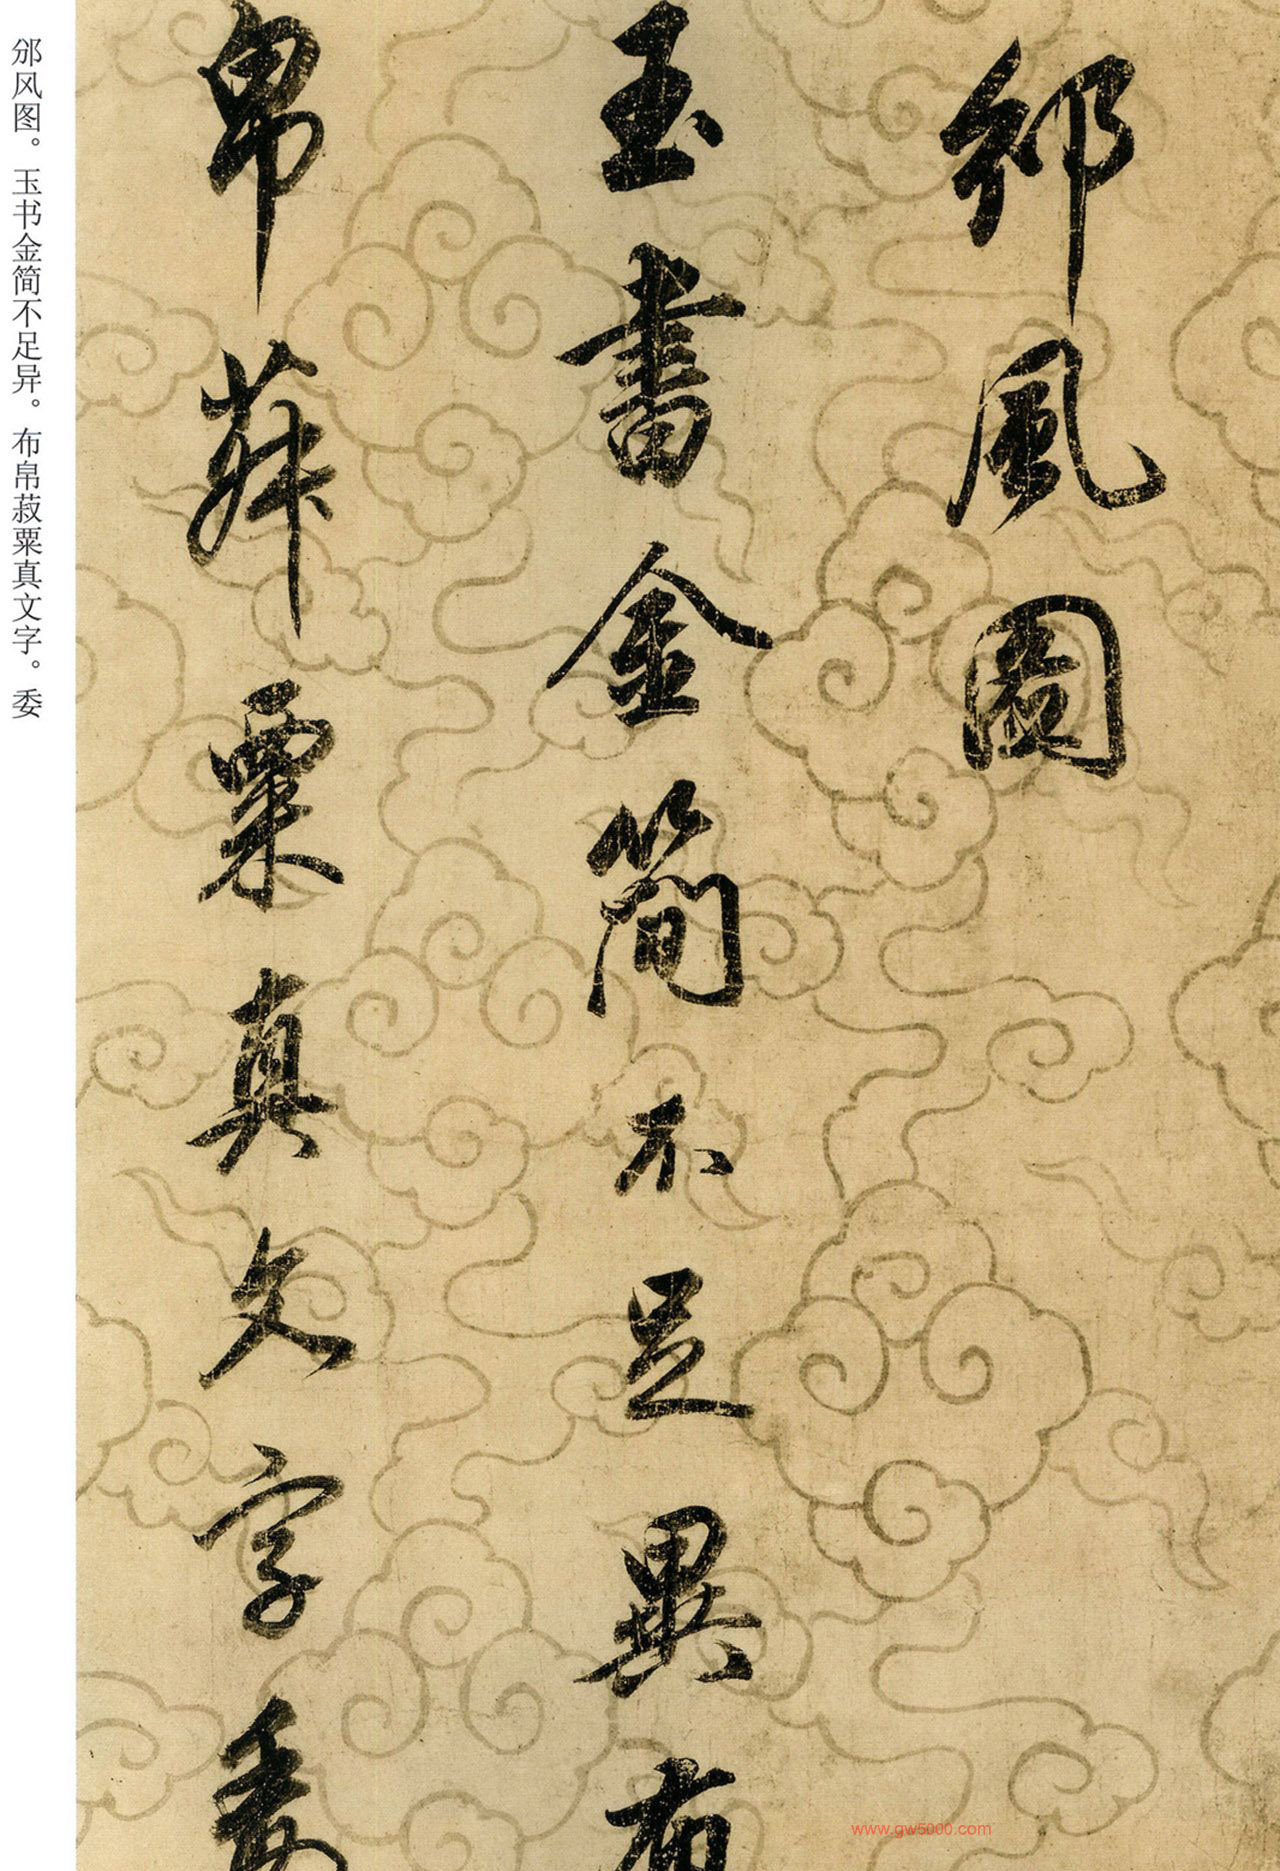 邠風圖
玉書金簡不足異布
帛菽粟真文字委
邠风图。玉书金简不足异。布帛菽粟真文字。委
www.gw5000.com